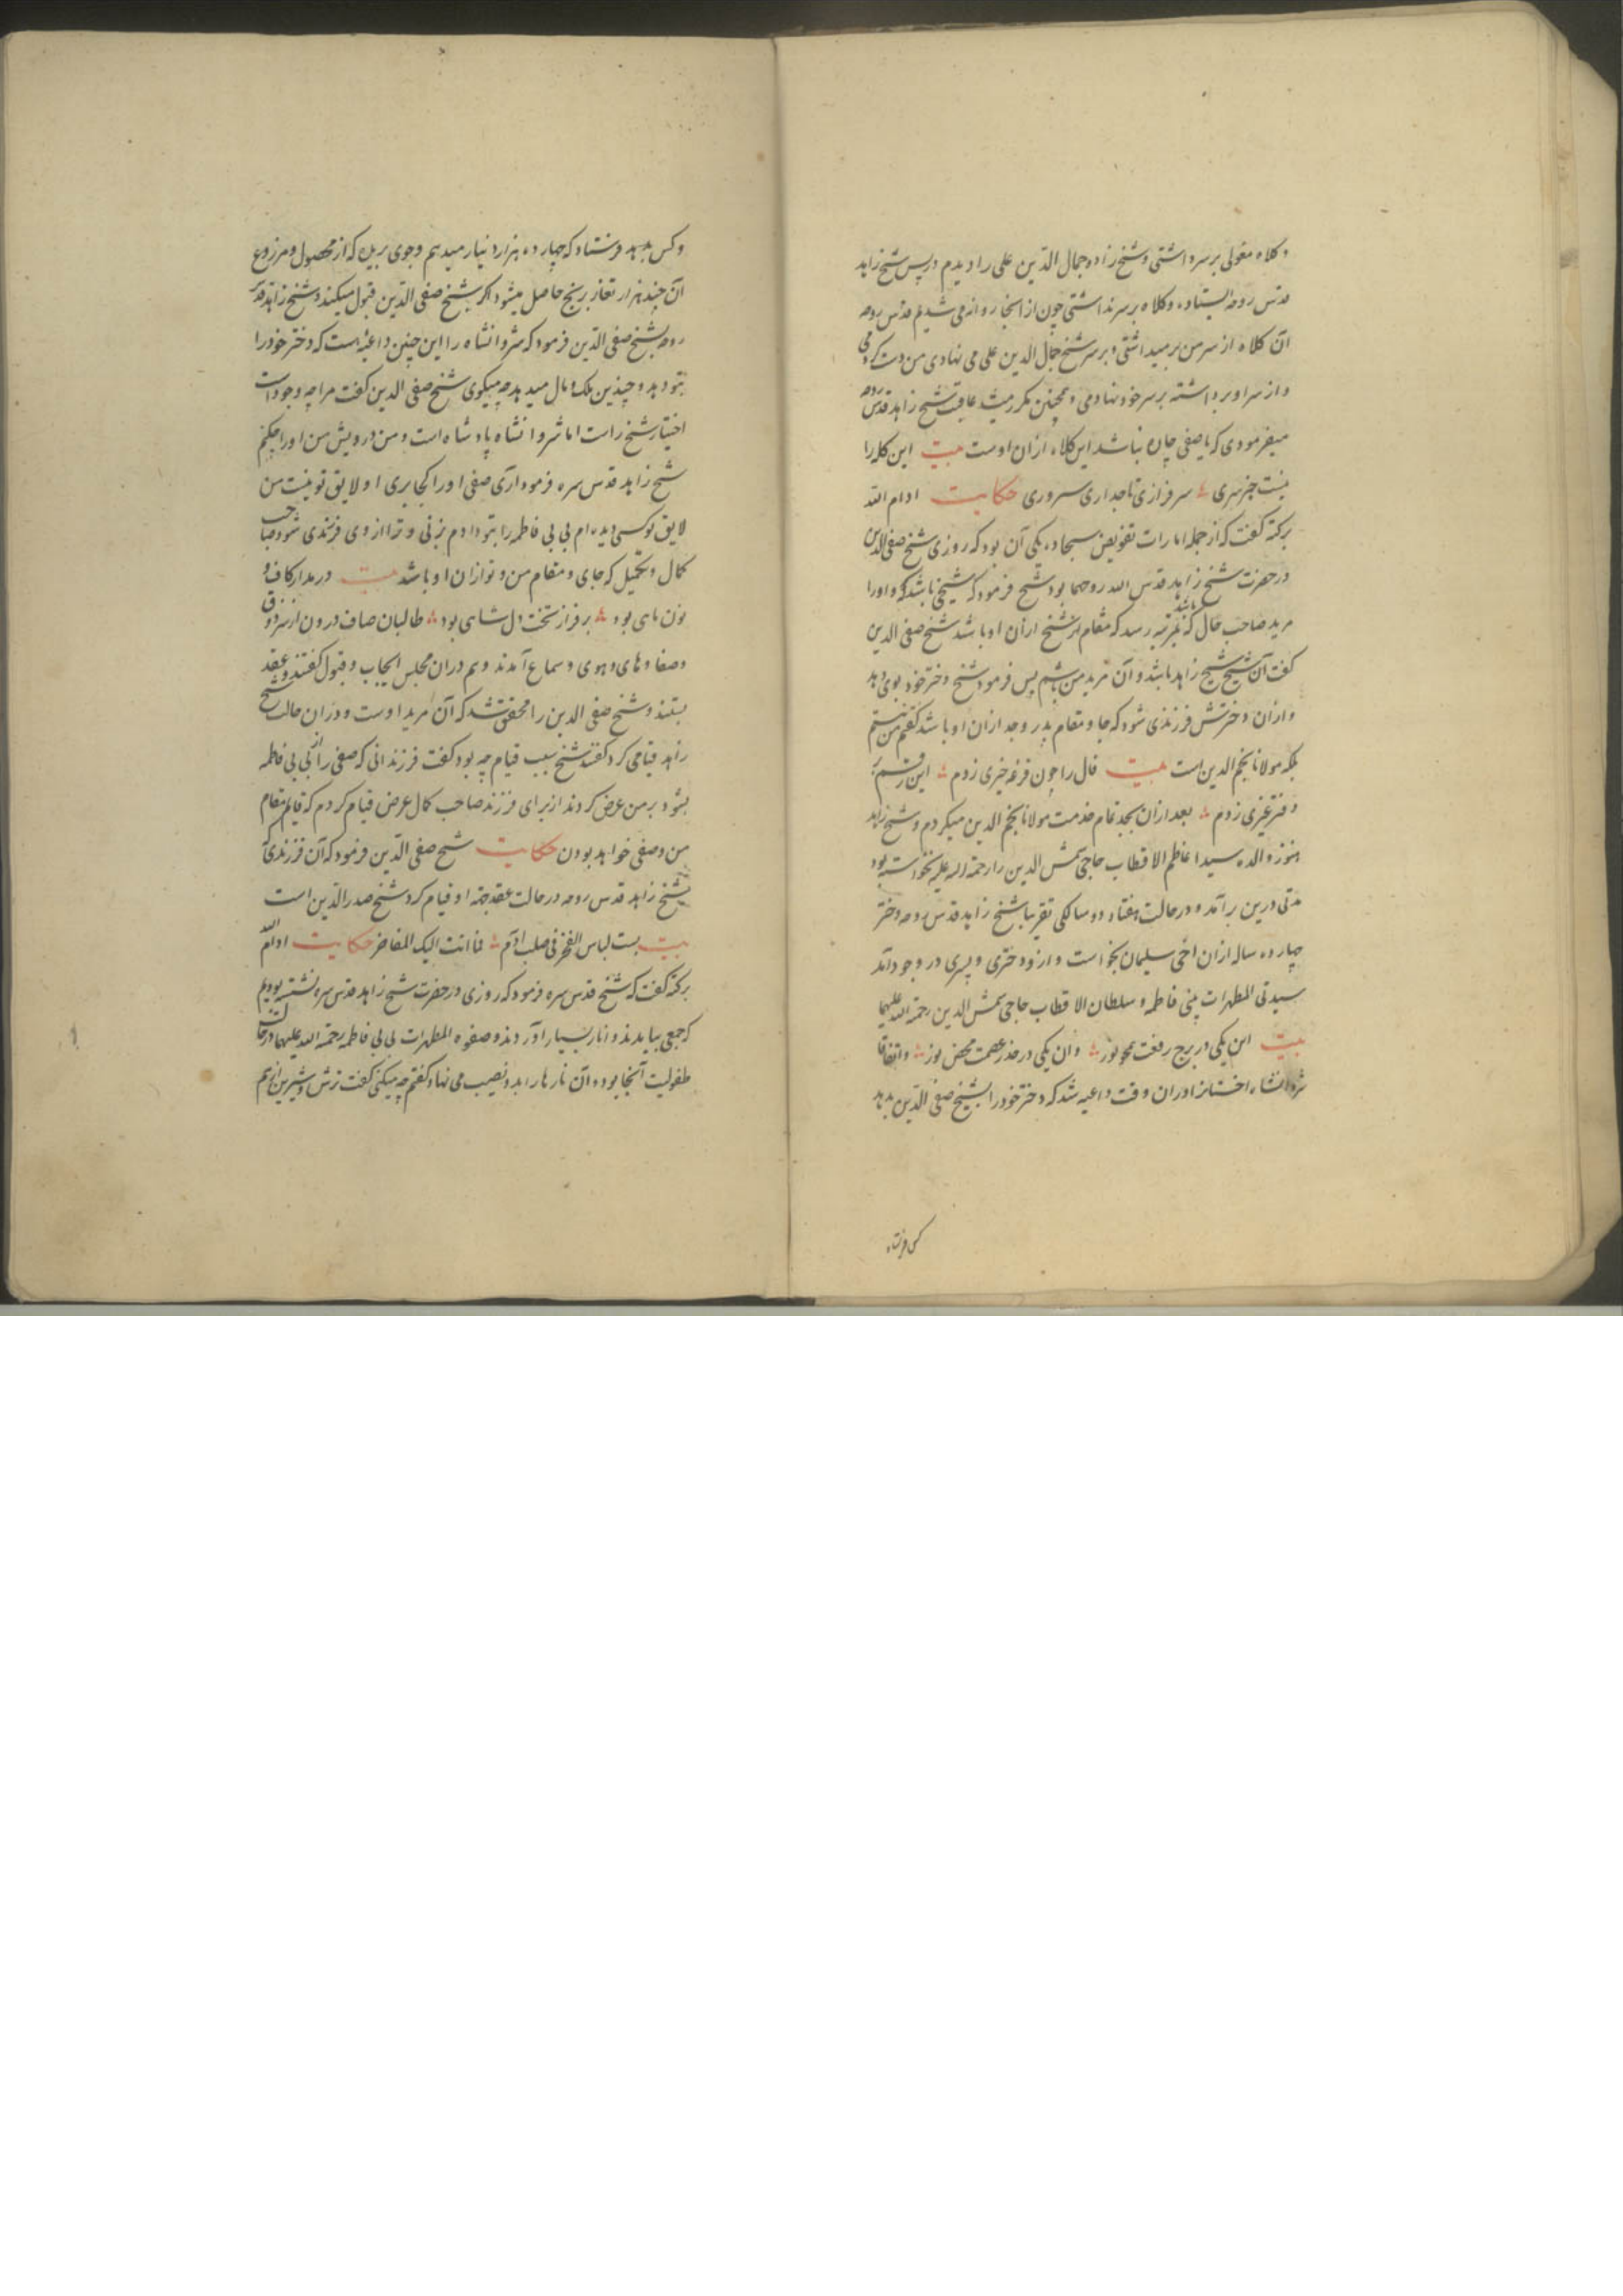 و کلاه مغولی بر سر داشتی و شیخ زاده جمال الدین علی را دیدم در پس شیخ زاهد
قدس روحه ایستاده و کلاه بر سر نداشتی چون از انجا روانه می شدیم قدس روحه
آن کلاه از سر من بر میداشتی و بر سر شیخ جمال الدین علی می نهادی من دست کردمی
و از سر او برداشته بر سر خود نهادمی و همچنین مکرر عاقبت شیخ زاهد قدس روحه
میفرمودی که با صفی چاره نباشد این کلاه ازان اوست بیت این کله را
نیست جز سری سرفرازی تاجداری سروری حکایت ادام الله
برکته گفت که از جمله امارات تفویض سجاده یکی آن بود که روزی شیخ صفی الدین
در حضرت شیخ زاهد قدس الله روحهما بود شیخ فرمود که شیخی باشد که او را
مرید صاحب حال باشد که بمرتبه رسد که مقام آن شیخ ازان او باشد شیخ صفی الدین
گفت آن شیخ شیخ زاهد باشد و آن مرید من باشم پس فرمود شیخ دختر خود بوی دهد
و ازان دخترش فرزندی شود که جا و مقام پدر و جد ازان او باشد گفتم من نیستم
بلکه مولانا نجم الدین است بیت فال را چون قرعه خیری زدم این رقم
دفتر غیری زدم بعد ازان بجد تمام خدمت مولانا نجم الدین میکردم و شیخ زاهد
هنوز والده سید اعاظم الاقطاب حاجی شمس الدین را رحمة الله علیه نخواسته بود
مدتی درین برآمد و در حالت هفتاد و دو سالگی تقریبا شیخ زاهد قدس روحه دختر
چهارده ساله ازان اخی سلیمان بخواست و ازو دختری و پسری در وجود آمد
سیدتی المطهرات بی بی فاطمه و سلطان الاقطاب حاجی شمس الدین رحمة الله علیهما
بیت این یکی در برج رفعت همچو نور وان یکی در خدر عصمت محض نور و اتفاقا
شروانشاه اخستانرا دران وقت داعیه شد که دختر خود را بشیخ صفی الدین بدهد
کس فرستاد
و کس بدهد فرستاد که چهارده هزار دینار میدهم و جوی بریده که از محصول و مزروع
آن چند هزار تغار برنج حاصل میشود اگر شیخ صفی الدین قبول میکند و شیخ زاهد قدس
روحه بشیخ صفی الدین فرمود که شروانشاه را این چنین داعیه است که دختر خود را
بتو دهد و چندین ملک و مال میدهد چه میگوی شیخ صفی الدین گفت مرا چه وجود است
اختیار شیخ راست اما شروانشاه پادشاه است و من درویش من او را چکنم
شیخ زاهد قدس سره فرمود آری صفی او را کجا بری او لایق تو نیست من
لایق تو کسی دیده ام بی بی فاطمه را بتو دادم بزنی و ترا از وی فرزندی شود صاحب
کمال و تکمیل که جای و مقام من و تو ازان او باشد بیت در مدار کاف و
نون ماهی بود بر فراز تخت دل شاهی بود طالبان صاف درون از سر ذوق
و صفا و های و هوی و سماع آمدند و هم دران مجلس ایجاب و قبول گفتند و عقد
بستند و شیخ صفی الدین را محقق شد که آن مرید اوست و دران حالت شیخ
زاهد قیامی کرد گفتند شیخ سبب قیام چه بود گفت فرزندانی که صفی را از بی بی فاطمه
بشود بر من عرض کردند از برای فرزند صاحب کمال عرض قیام کردم که قایم مقام
من و صفی خواهد بودن حکایت شیخ صفی الدین فرمود که آن فرزندی که
شیخ زاهد قدس روحه در حالت عقد جهة او قیام کرد شیخ صدر الدین است
بیت بست لباس الفخر فی صلب آدم فما انت الیک المفاخر حکایت ادام الله
برکته گفت که شیخ قدس سره فرمود که روزی در حضرت شیخ زاهد قدس سره نشسته بودیم
که جمعی بیامدند و انار بسیار آوردند و صفوه المطهرات بی بی فاطمه رحمة الله علیهما در حالت
طفولیت آنجا بود و آن نارها را بدو نصیب می نهاد گفتم چه میکنی گفت ترش و شیرین از هم